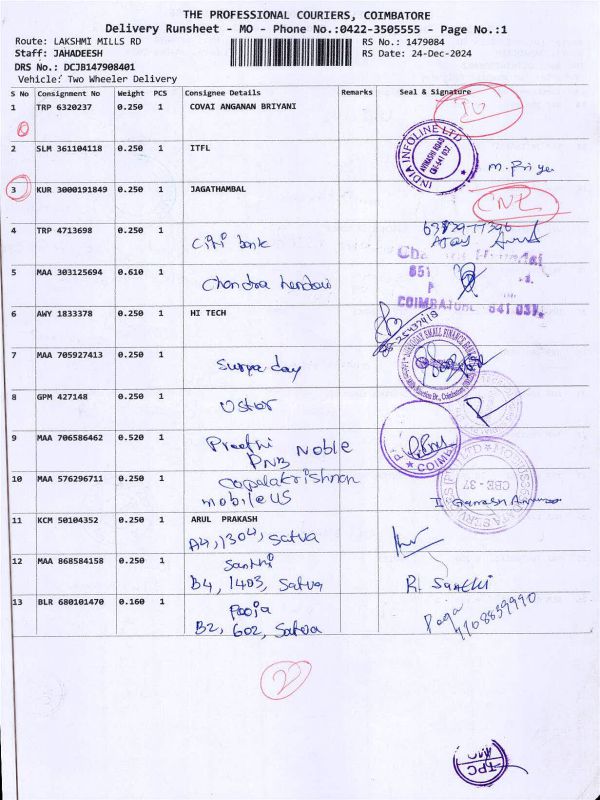 THE PROFESSIONAL COURIERS, COIMBATORE
Delivery Runsheet - MO - Phone No.:0422-3505555 - Page No.:1
Route: LAKSHMI MILLS RD RS No.: 1479084
Staff: JAHADEESH RS Date: 24-Dec-2024
DRS No.: DCJB147908401
Vehicle: Two Wheeler Delivery
S No Consignment No Weight PCS Consignee Details Remarks Seal & Signature
1 TRP 6320237 0.250 1 COVAI ANGANAN BRIYANI
2 SLM 361104118 0.250 1 ITFL
INDIA INFOLINE LTD
AVINASHI ROAD
CBE-641 037
M. Priya
3 KUR 3000191849 0.250 1 JAGATHAMBAL CNL
4 TRP 4713698 0.250 1 Citi bank
5 MAA 303125694 0.610 1 Chandra
COIMBATORE 641 037.
6 AWY 1833378 0.250 1 HI TECH
7 MAA 705927413 0.250 1 Surya day
SMALL FINANCE BANK
8 GPM 427148 0.250 1
9 MAA 706586462 0.520 1 Preethi Noble
PNB
COIMB
10 MAA 576296711 0.250 1 Gopalakrishnan
mobileus
CBE - 37
11 KCM 50104352 0.250 1 ARUL PRAKASH
A4, 1304, Satva
12 MAA 868584158 0.250 1 Santhi
B4, 1403, Satva R. Santhi
13 BLR 680101470 0.160 1 Pooja
B2, 602, Satva Pooja
2
TPC